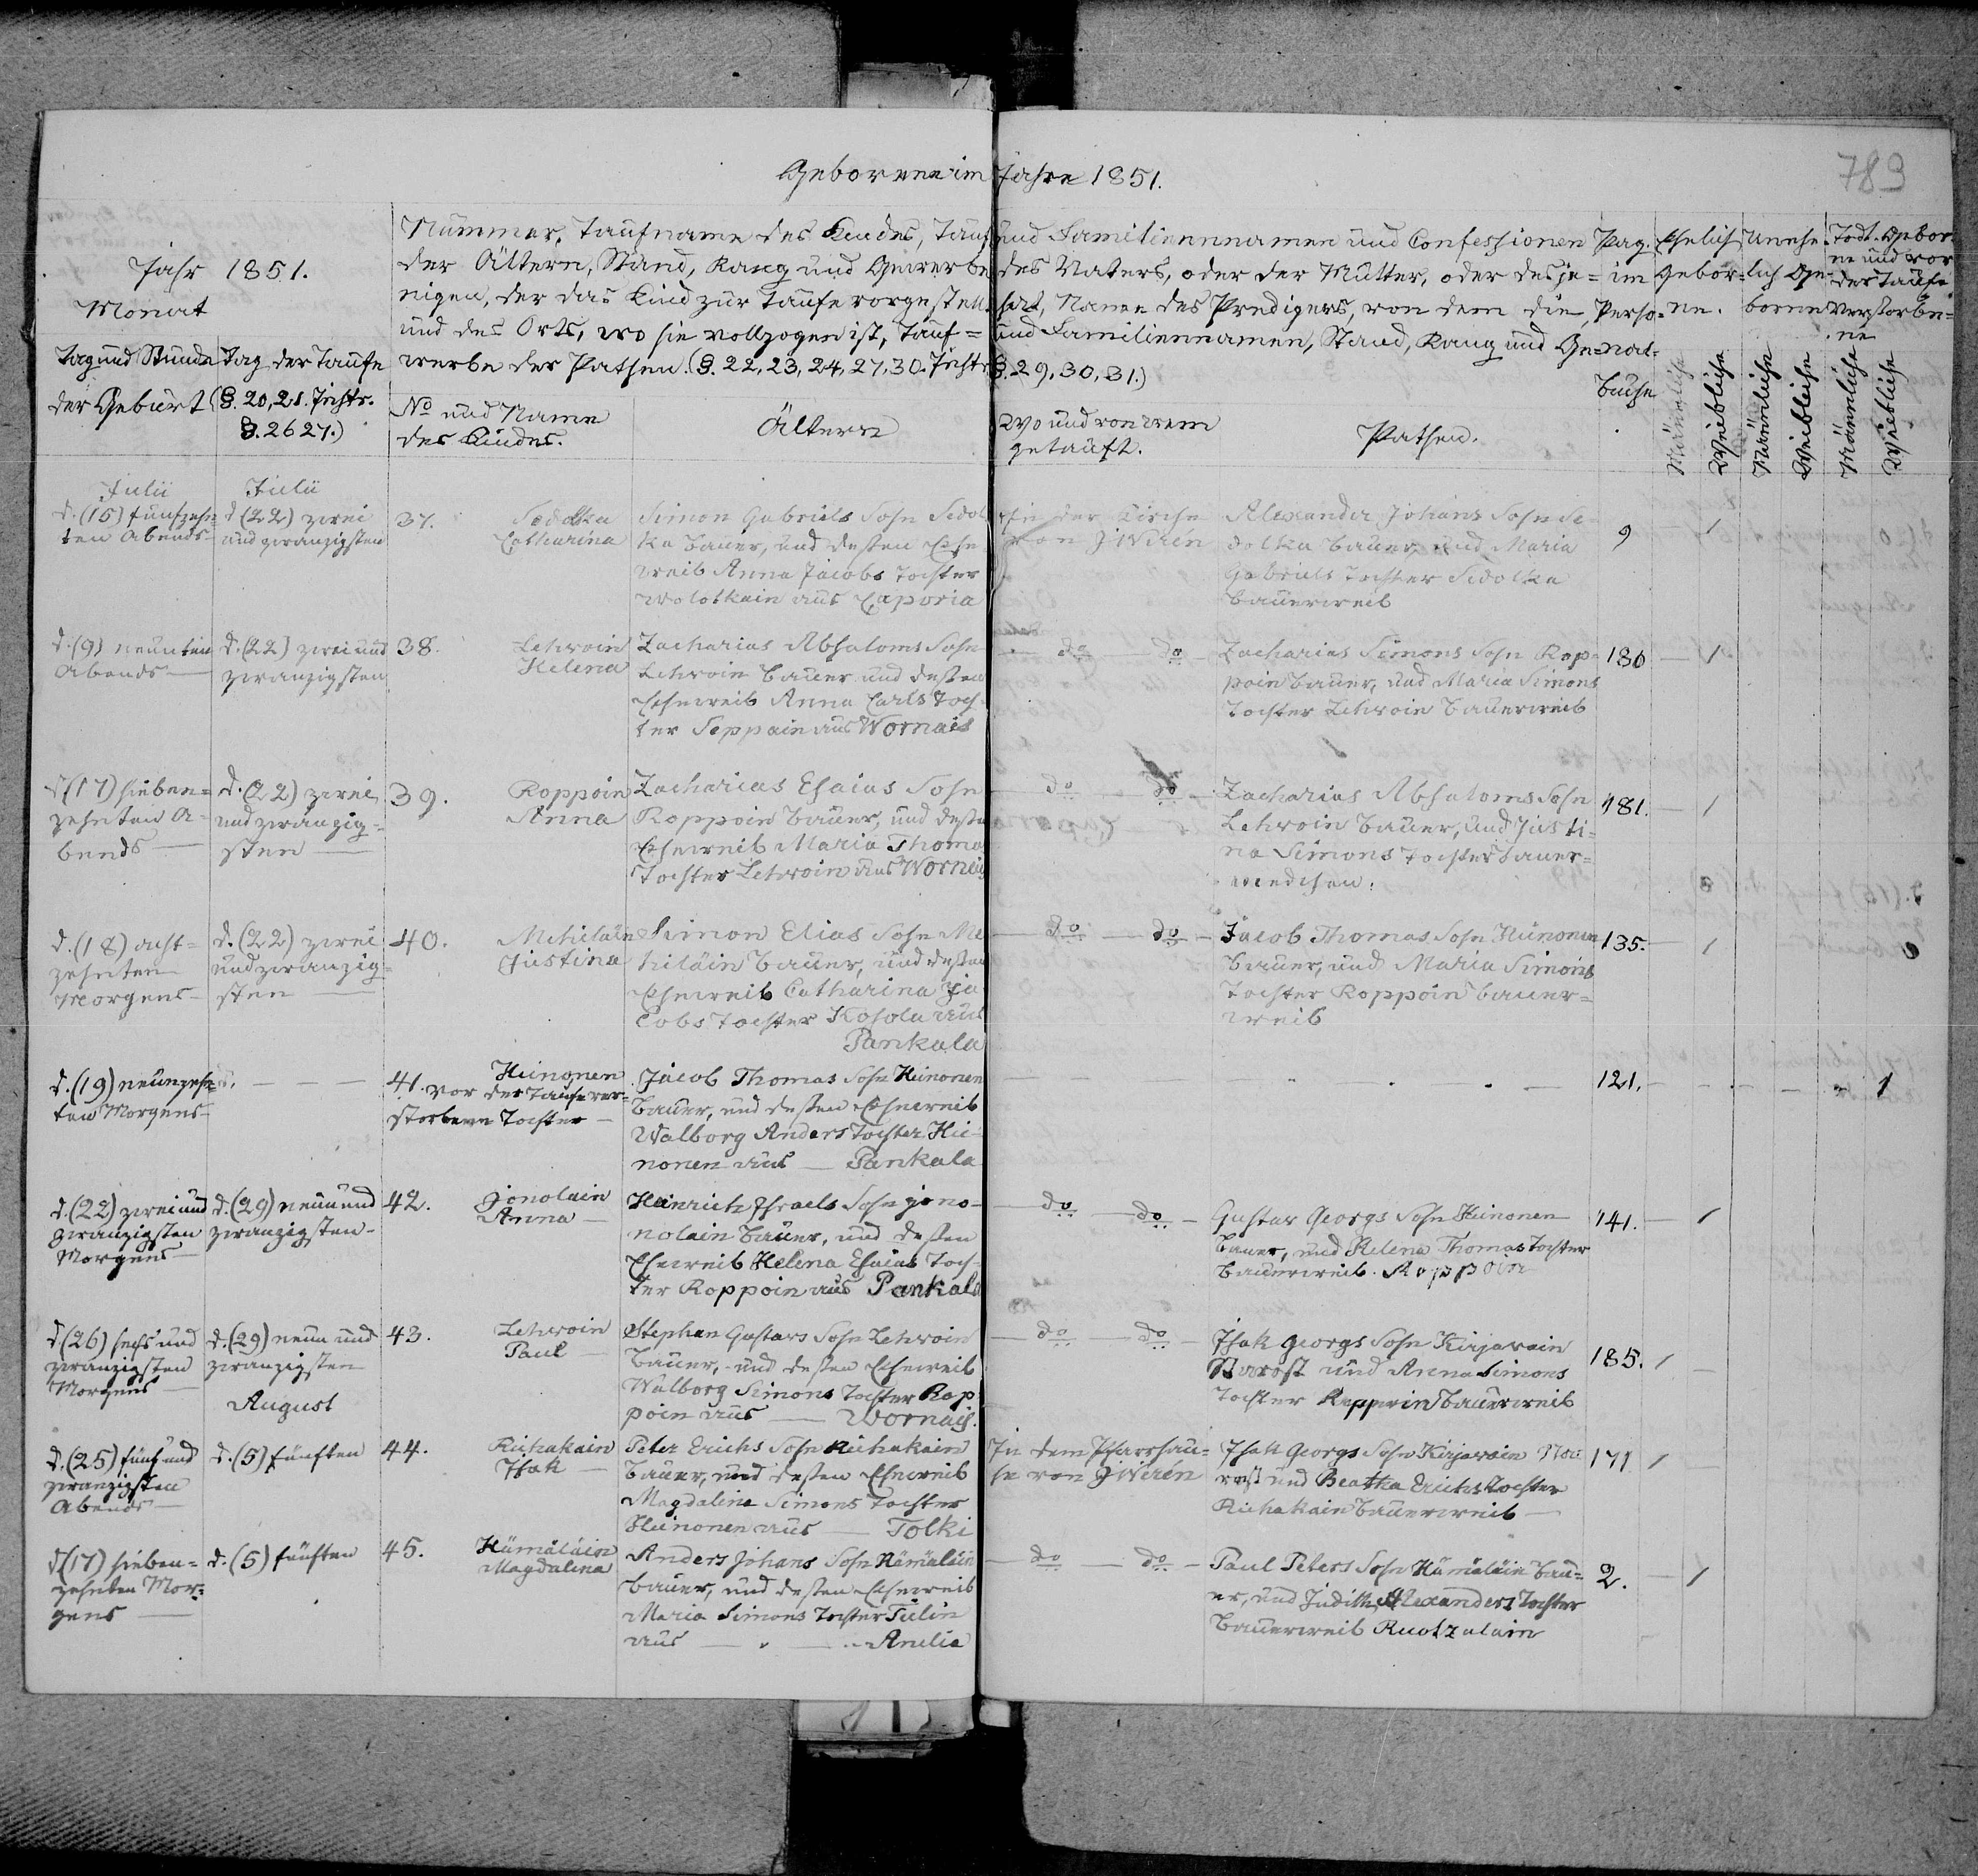 Geborene im Jahre 1851.
789
Jahr 1851.
Monat
Tag und Stunde der Geburt
Tag der Taufe (§. 20, 21. Instr. §. 26 27.)
Nummer, Taufname des Kindes, Tauf- und Familiennamen und Confessionen
der Ältern, Stand, Rang und Gewerbe des Vaters, oder der Mutter, oder desje-
nigen, der das Kind zur Taufe vorgestellt hat, Name des Predigers, von dem die,
und des Orts, wo sie vollzogen ist, Tauf- und Familiennamen, Stand, Rang und Ge-
werbe der Pathen. (§. 22, 23, 24, 27, 30. Instr. §. 29, 30, 31.)
No und Name
des Kindes.
Ältern
Wo und von wem
getauft.
Pathen.
Pag.
im
Perso-
nal-
buche
Ehelich
Gebor-
ne.
Unehe-
lich Ge-
borne
Todt-Gebor-
ne und vor
der Taufe
verstorbe-
ne
Männliche
Weibliche
Männliche
Weibliche
Männliche
Weibliche
Julii
d. (15) funfzehn-
ten Abends
Julii
d. (22) zwei
und zwanzigsten
37.
Sedolka
Catharina
Simon Gabriels Sohn Sedol
ka Bauer, und deßen Ehe
weib Anna Jacobs Tochter
Wolotkain aus Caporia
In der Kirche
von J Weren
Alexander Johans Sohn Se-
dolka Bauer, und Maria
Gabriels Tochter Sedolka
Bauerweib
9 1
d. (9) neunten
Abends
d. (22) zwei und
zwanzigsten
38.
Lehwoin
Helena
Zacharias Absaloms Sohn
Lehwoin Bauer und deßen
Eheweib Anna Carls Toch-
ter Seppain aus Wornais
do do
Zacharias Simons Sohn Rop-
poin Bauer, und Maria Simons
Tochter Lehwoin Bauerweib
180 1
d (17) sieben-
zehnten A-
bends
d. (22) zwei
und zwanzig-
sten
39.
Roppoin
Anna
Zacharias Esaias Sohn
Roppoin Bauer, und deßen
Eheweib Maria Thoma
Tochter Lehwoin aus Wornais
do do
Zacharias Absaloms Sohn
Lehwoin Bauer, und Justi-
na Simons Tochter Bauer-
medchen.
181. 1
d. (18) acht-
zehnten
Morgens
d. (22) zwei
und zwanzig-
sten
40.
Mehiläin
Justina
Simon Elias Sohn Me
hiläin Bauer, und deßen
Eheweib Catharina Ja
cobs Tochter Kosola aus
Pankala
do do
Jacob Thomas Sohn Heinonen
Bauer, und Maria Simons
Tochter Roppoin Bauer-
weib
135. 1
d. (19) neunzehn
ten Morgens
41.
Heinonen
vor der Taufe ver-
storbene Tochter
Jacob Thomas Sohn Heinonen
Bauer, und deßen Eheweib
Walborg Anders Tochter Hei-
nonen aus Pankala
121. 1
d. (22) zwei und
zwanzigsten
Morgens
d. (29) neun und
zwanzigsten
42.
Jonolain
Anna
Heinrich Israels Sohn Jono-
nolain Bauer, und deßen
Eheweib Helena Esaias Toch-
ter Roppoin aus Pankala
do do
Gustav Georgs Sohn Heinonen
Bauer, und Helena Thomas Tochter
Bauerweib. Roppoin
141. 1
d (26) sechs und
zwanzigsten
Morgens
d. (29) neun und
zwanzigsten
43.
Lehwoin
Paul
Stephan Gustavs Sohn Lehwoin
Bauer, und deßen Eheweib
Walborg Simons Tochter Rop
poin aus Wornais.
do do
Isak Georgs Sohn Kirjavain
Starost und Anna Simons
Tochter Roppoin Bauerweib
185. 1
August
d. (25) fünf und
zwanzigsten
Abends
d. (5) fünften
44.
Richakain
Isak
Peter Erichs Sohn Richakain
Bauer, und deßen Eheweib
Magdalina Simons Tochter
Heinonen aus Tolki
In dem Pfarrhau-
se von J Werén
Isak Georgs Sohn Kirjavain
und Beatha Erichs Tochter
Richakain Bauerweib
171 1
d (17) sieben-
zehnten Mor-
gens
d. (5) fünften
45.
Hämäläin
Magdalina
Anders Johans Sohn Hämäläin
Bauer, und deßen Eheweib
Maria Simons Tochter Tülin
aus Anelia
do do
Paul Peters Sohn Hämäläin Bau-
er, und Judith Alexanders Tochter
Bauerweib Ruotzalain
2. 1